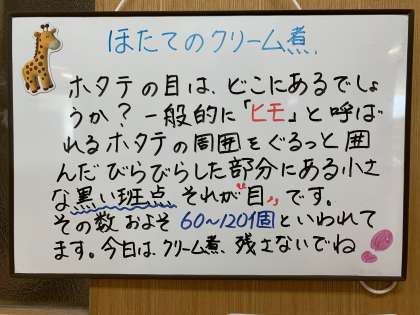 ほたてのクリーム煮
ホタテの目は、どこにあるでしょ
うか？一般的に「ヒモ」と呼ば
れるホタテの周囲をぐるっと囲
んだびらびらした部分にある小さ
な黒い斑点 それが"目"です。
その数 およそ 60～120個といわれて
ます。今日は、クリーム煮、残さないでね